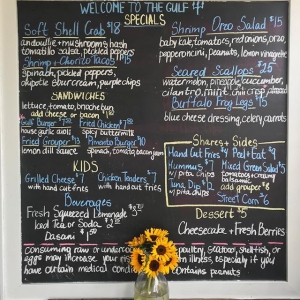 WELCOME TO THE GULF
SPECIALS
Soft Shell Crab $18
andouille + mushrooms hash
tomatillo salsa, pickled peppers
Shrimp + Chorizo Tacos $15
spinach, pickled peppers,
chipotle sour cream, purple chips
SANDWICHES
lettuce, tomato, brioche bun
add cheese or bacon
Gulf Burger
Fried Chicken
house garlic aioli
spicy buttermilk
Fried Grouper $13
Pimento Burger $10
lemon dill sauce
spinach, tomato, bacon jam
KIDS
Grilled Cheese $7
Chicken Tenders $7
with hand cut fries
with hand cut fries
Beverages
Fresh Squeezed Lemonade
Iced Tea or Soda
Dasani
Shrimp Oreo Salad $15
baby kale, tomatoes, red onions, orzo,
pepperoncini, peanuts, lemon vinaigrette
Seared Scallops $25
watermelon, pineapple, cucumber,
cilantro, mint
Buffalo Frog Legs $15
blue cheese dressing, celery, carrots
Shares + Sides
Hand Cut Fries $4
Peel + Eat $9
Hummus
Mixed Green Salad $5
w/ pita chips
balsamic
Tuna Dip
add grouper $8
w/ pita chips
Street Corn $6
Dessert $5
Cheesecake + Fresh Berries
Consuming raw or under
poultry, seafood, shellfish, or
eggs may increase your
illness, especially if you
have certain medical
contains peanuts